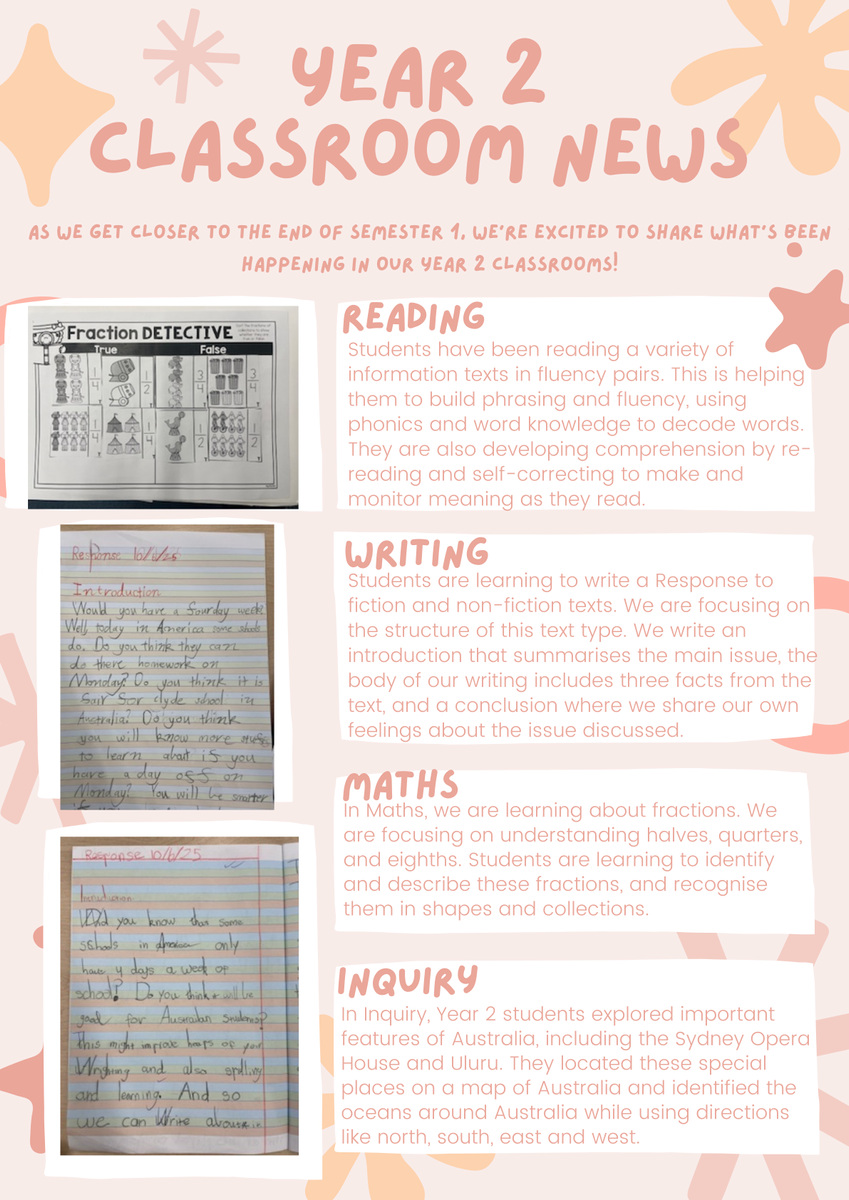 YEAR 2
CLASSROOM NEWS
AS WE GET CLOSER TO THE END OF SEMESTER 1, WE'RE EXCITED TO SHARE WHAT'S BEEN
HAPPENING IN OUR YEAR 2 CLASSROOMS!
Fraction DETECTIVE
True False
1/4 1/2 3/4 3/4
1/4 1/4 1/2 1/2
READING
Students have been reading a variety of
information texts in fluency pairs. This is helping
them to build phrasing and fluency, using
phonics and word knowledge to decode words.
They are also developing comprehension by re-
reading and self-correcting to make and
monitor meaning as they read.
Response 10/6/25
Introduction
Would you have a fourday week?
Well today in America some
do. Do you think they can
do there homework on
Monday? Do you think it is
fair for clyde school in
Australia? Do you think
you will know more
to learn about if you
have a day off on
Monday? You will be smarter
WRITING
Students are learning to write a Response to
fiction and non-fiction texts. We are focusing on
the structure of this text type. We write an
introduction that summarises the main issue, the
body of our writing includes three facts from the
text, and a conclusion where we share our own
feelings about the issue discussed.
MATHS
In Maths, we are learning about fractions. We
are focusing on understanding halves, quarters,
and eighths. Students are learning to identify
and describe these fractions, and recognise
them in shapes and collections.
Response 10/6/25
Introduction
Did you know that some
schools in America only
have 4 days a week of
school? Do you think will be
good for Australian students?
This might improve of your
and also spelling
and learning. And so
we can Write
INQUIRY
In Inquiry, Year 2 students explored important
features of Australia, including the Sydney Opera
House and Uluru. They located these special
places on a map of Australia and identified the
oceans around Australia while using directions
like north, south, east and west.